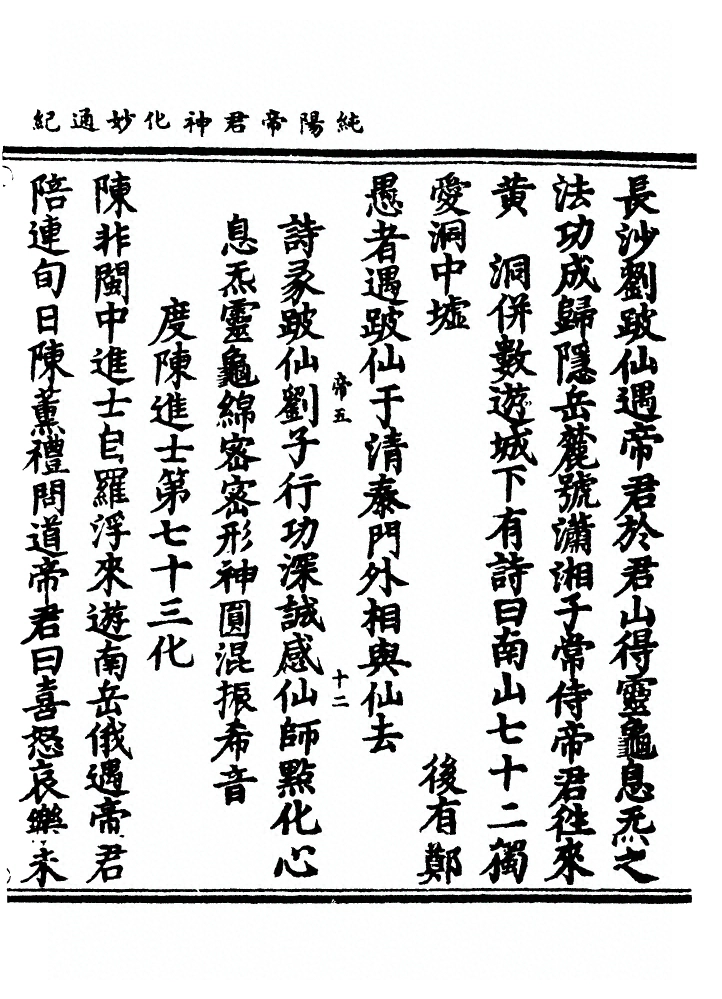 純陽帝君神化妙通紀
長沙劉跛仙遇帝君於君山得靈龜息炁之
法功成歸隱岳麓號瀟湘子常侍帝君往來
黃　洞併數遊城下有詩曰南山七十二獨
愛洞中墟　後有鄭
愚者遇跛仙于清泰門外相與仙去
帝五　十二
詩彖跛仙劉子行功深誠感仙師點化心
息炁靈龜綿密密形神圓混振希音
度陳進士第七十三化
陳非閩中進士自羅浮來遊南岳俄遇帝君
陪連旬日陳薰禮問道帝君曰喜怒哀樂未